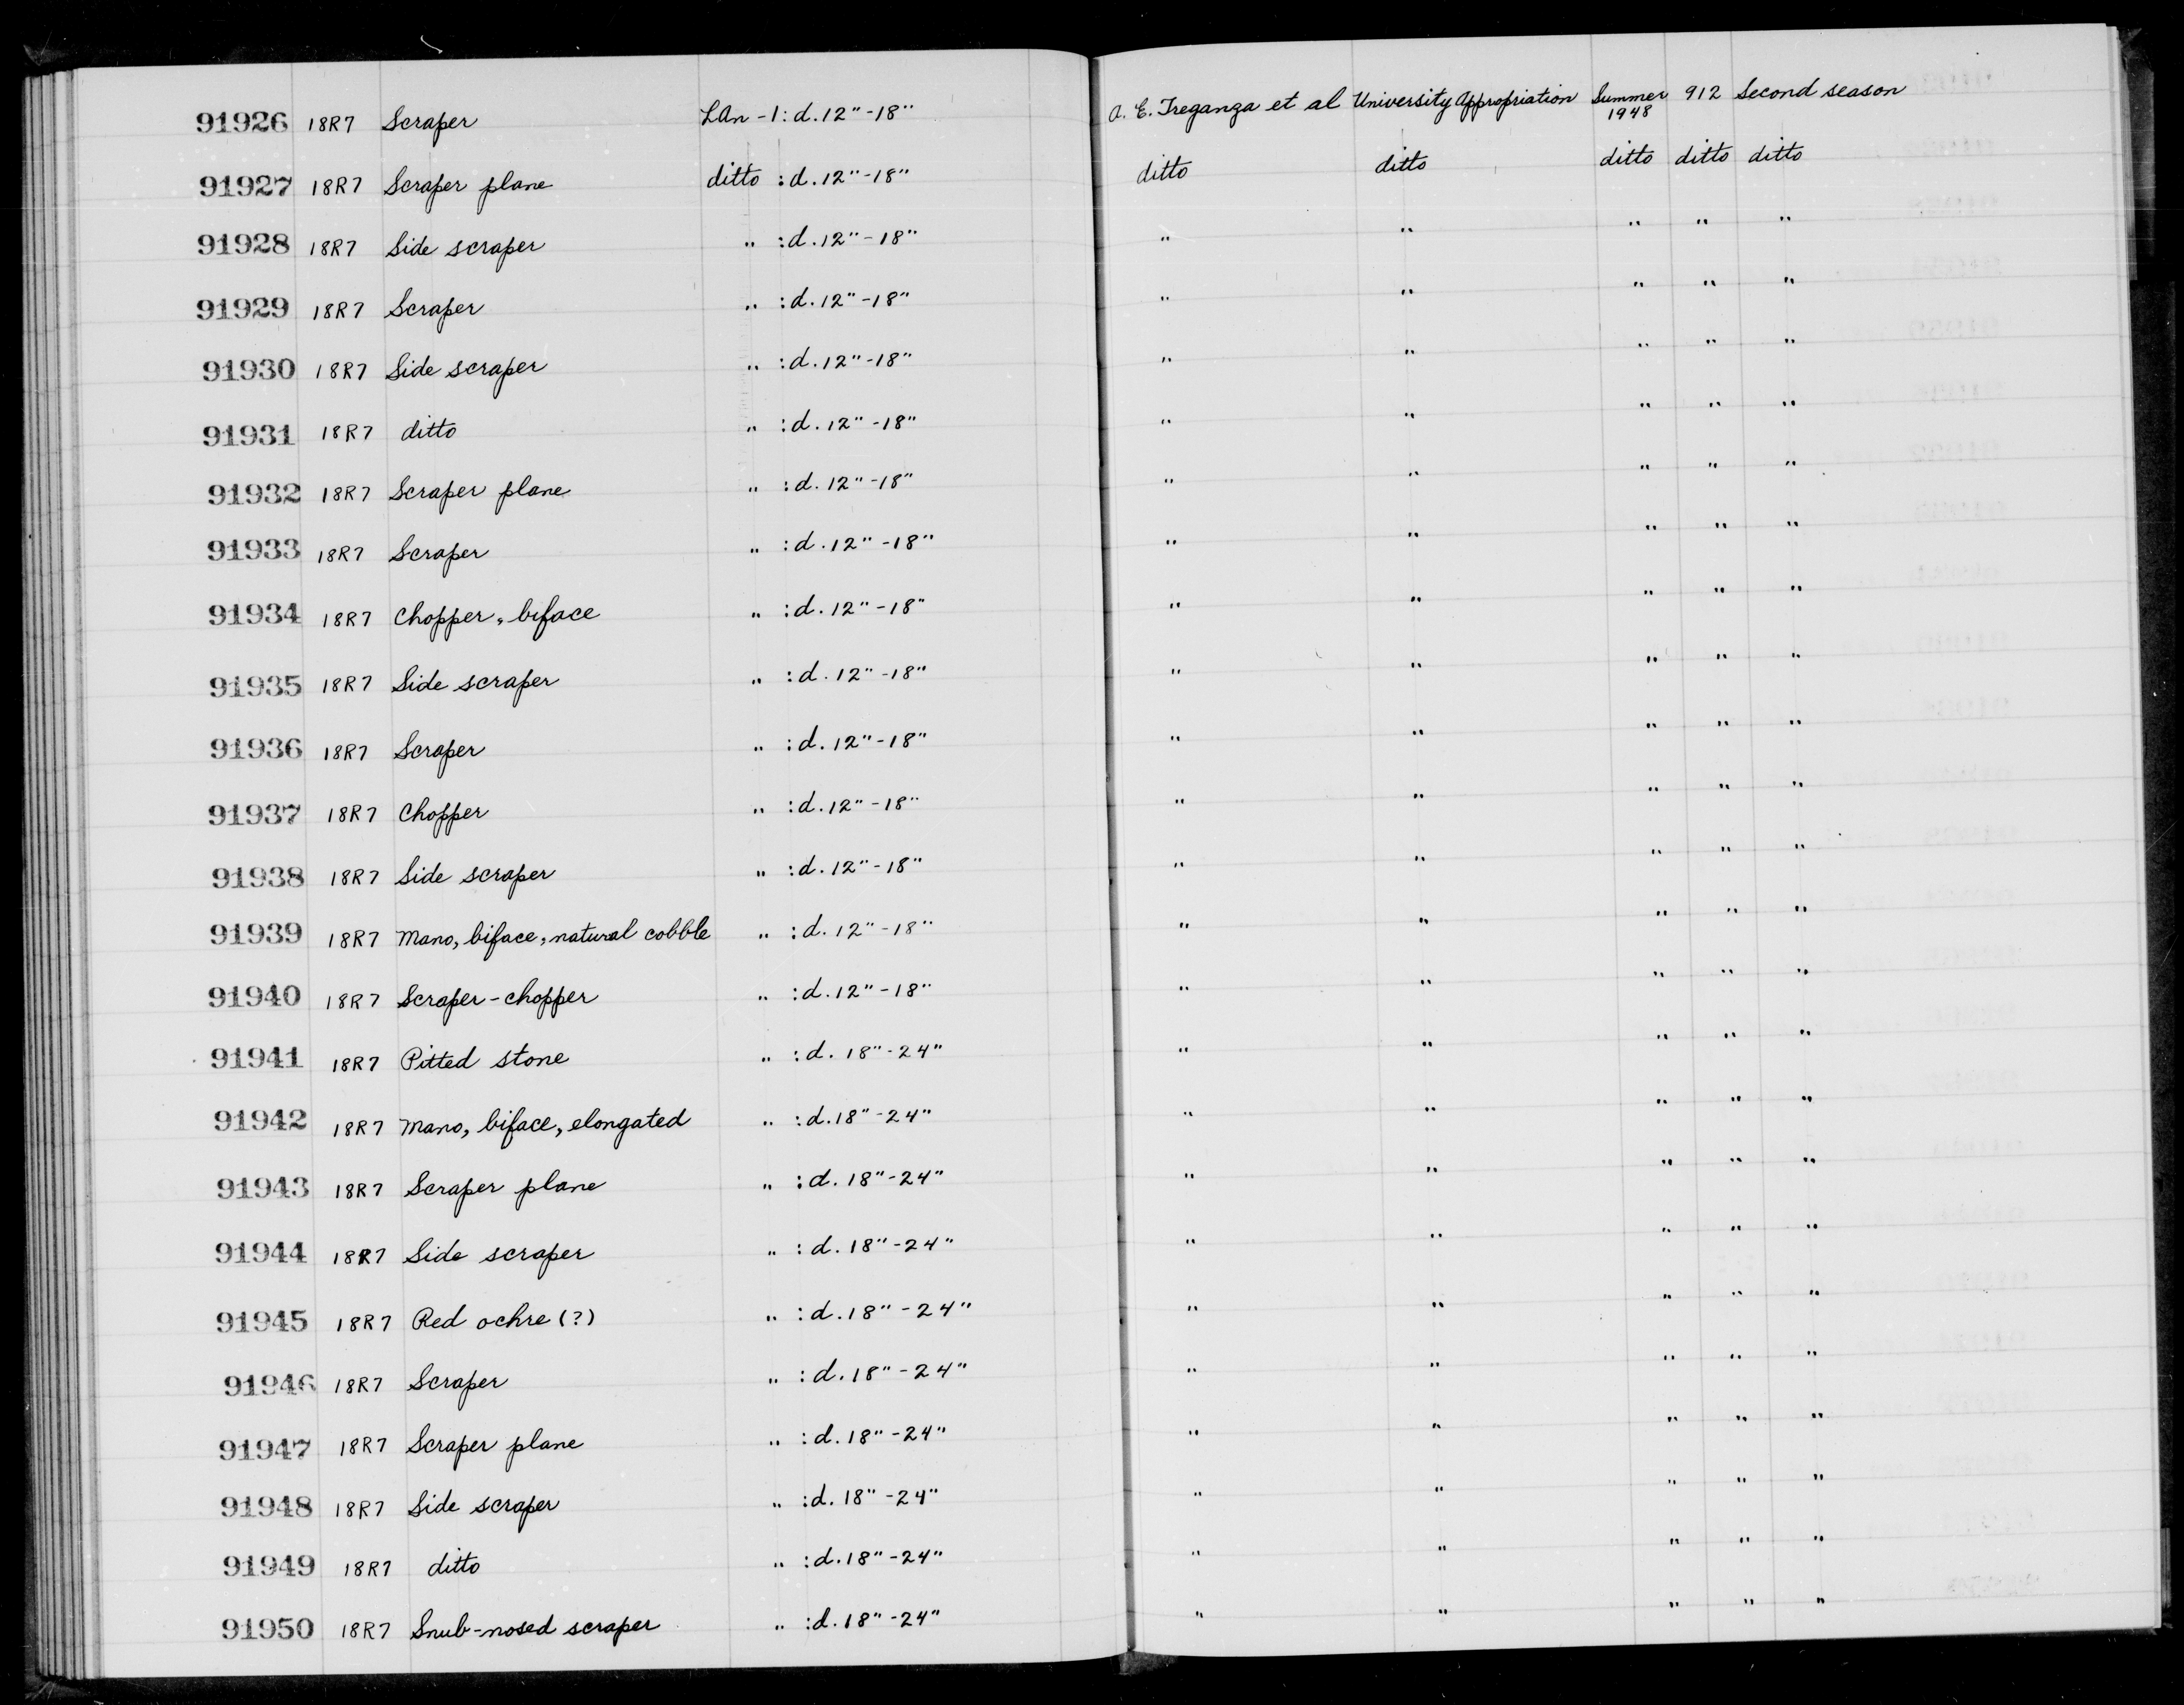 91926 18R7 Scraper LAn-1: d. 12"-18" A. E. Treganza et al University Appropriation Summer 1948 912 Second season
91927 18R7 Scraper plane ditto : d. 12"-18" ditto ditto ditto ditto ditto
91928 18R7 Side scraper " : d. 12"-18" " " " " "
91929 18R7 Scraper " : d. 12"-18" " " " " "
91930 18R7 Side scraper " : d. 12"-18" " " " " "
91931 18R7 ditto " : d. 12"-18" " " " " "
91932 18R7 Scraper plane " : d. 12"-18" " " " " "
91933 18R7 Scraper " : d. 12"-18" " " " " "
91934 18R7 Chopper, biface " : d. 12"-18" " " " " "
91935 18R7 Side scraper " : d. 12"-18" " " " " "
91936 18R7 Scraper " : d. 12"-18" " " " " "
91937 18R7 Chopper " : d. 12"-18" " " " " "
91938 18R7 Side scraper " : d. 12"-18" " " " " "
91939 18R7 Mano, biface, natural cobble " : d. 12"-18" " " " " "
91940 18R7 Scraper-chopper " : d. 12"-18" " " " " "
91941 18R7 Pitted stone " : d. 18"-24" " " " " "
91942 18R7 Mano, biface, elongated " : d. 18"-24" " " " " "
91943 18R7 Scraper plane " : d. 18"-24" " " " " "
91944 18R7 Side scraper " : d. 18"-24" " " " " "
91945 18R7 Red ochre (?) " : d. 18"-24" " " " " "
91946 18R7 Scraper " : d. 18"-24" " " " " "
91947 18R7 Scraper plane " : d. 18"-24" " " " " "
91948 18R7 Side scraper " : d. 18"-24" " " " " "
91949 18R7 ditto " : d. 18"-24" " " " " "
91950 18R7 Snub-nosed scraper " : d. 18"-24" " " " " "